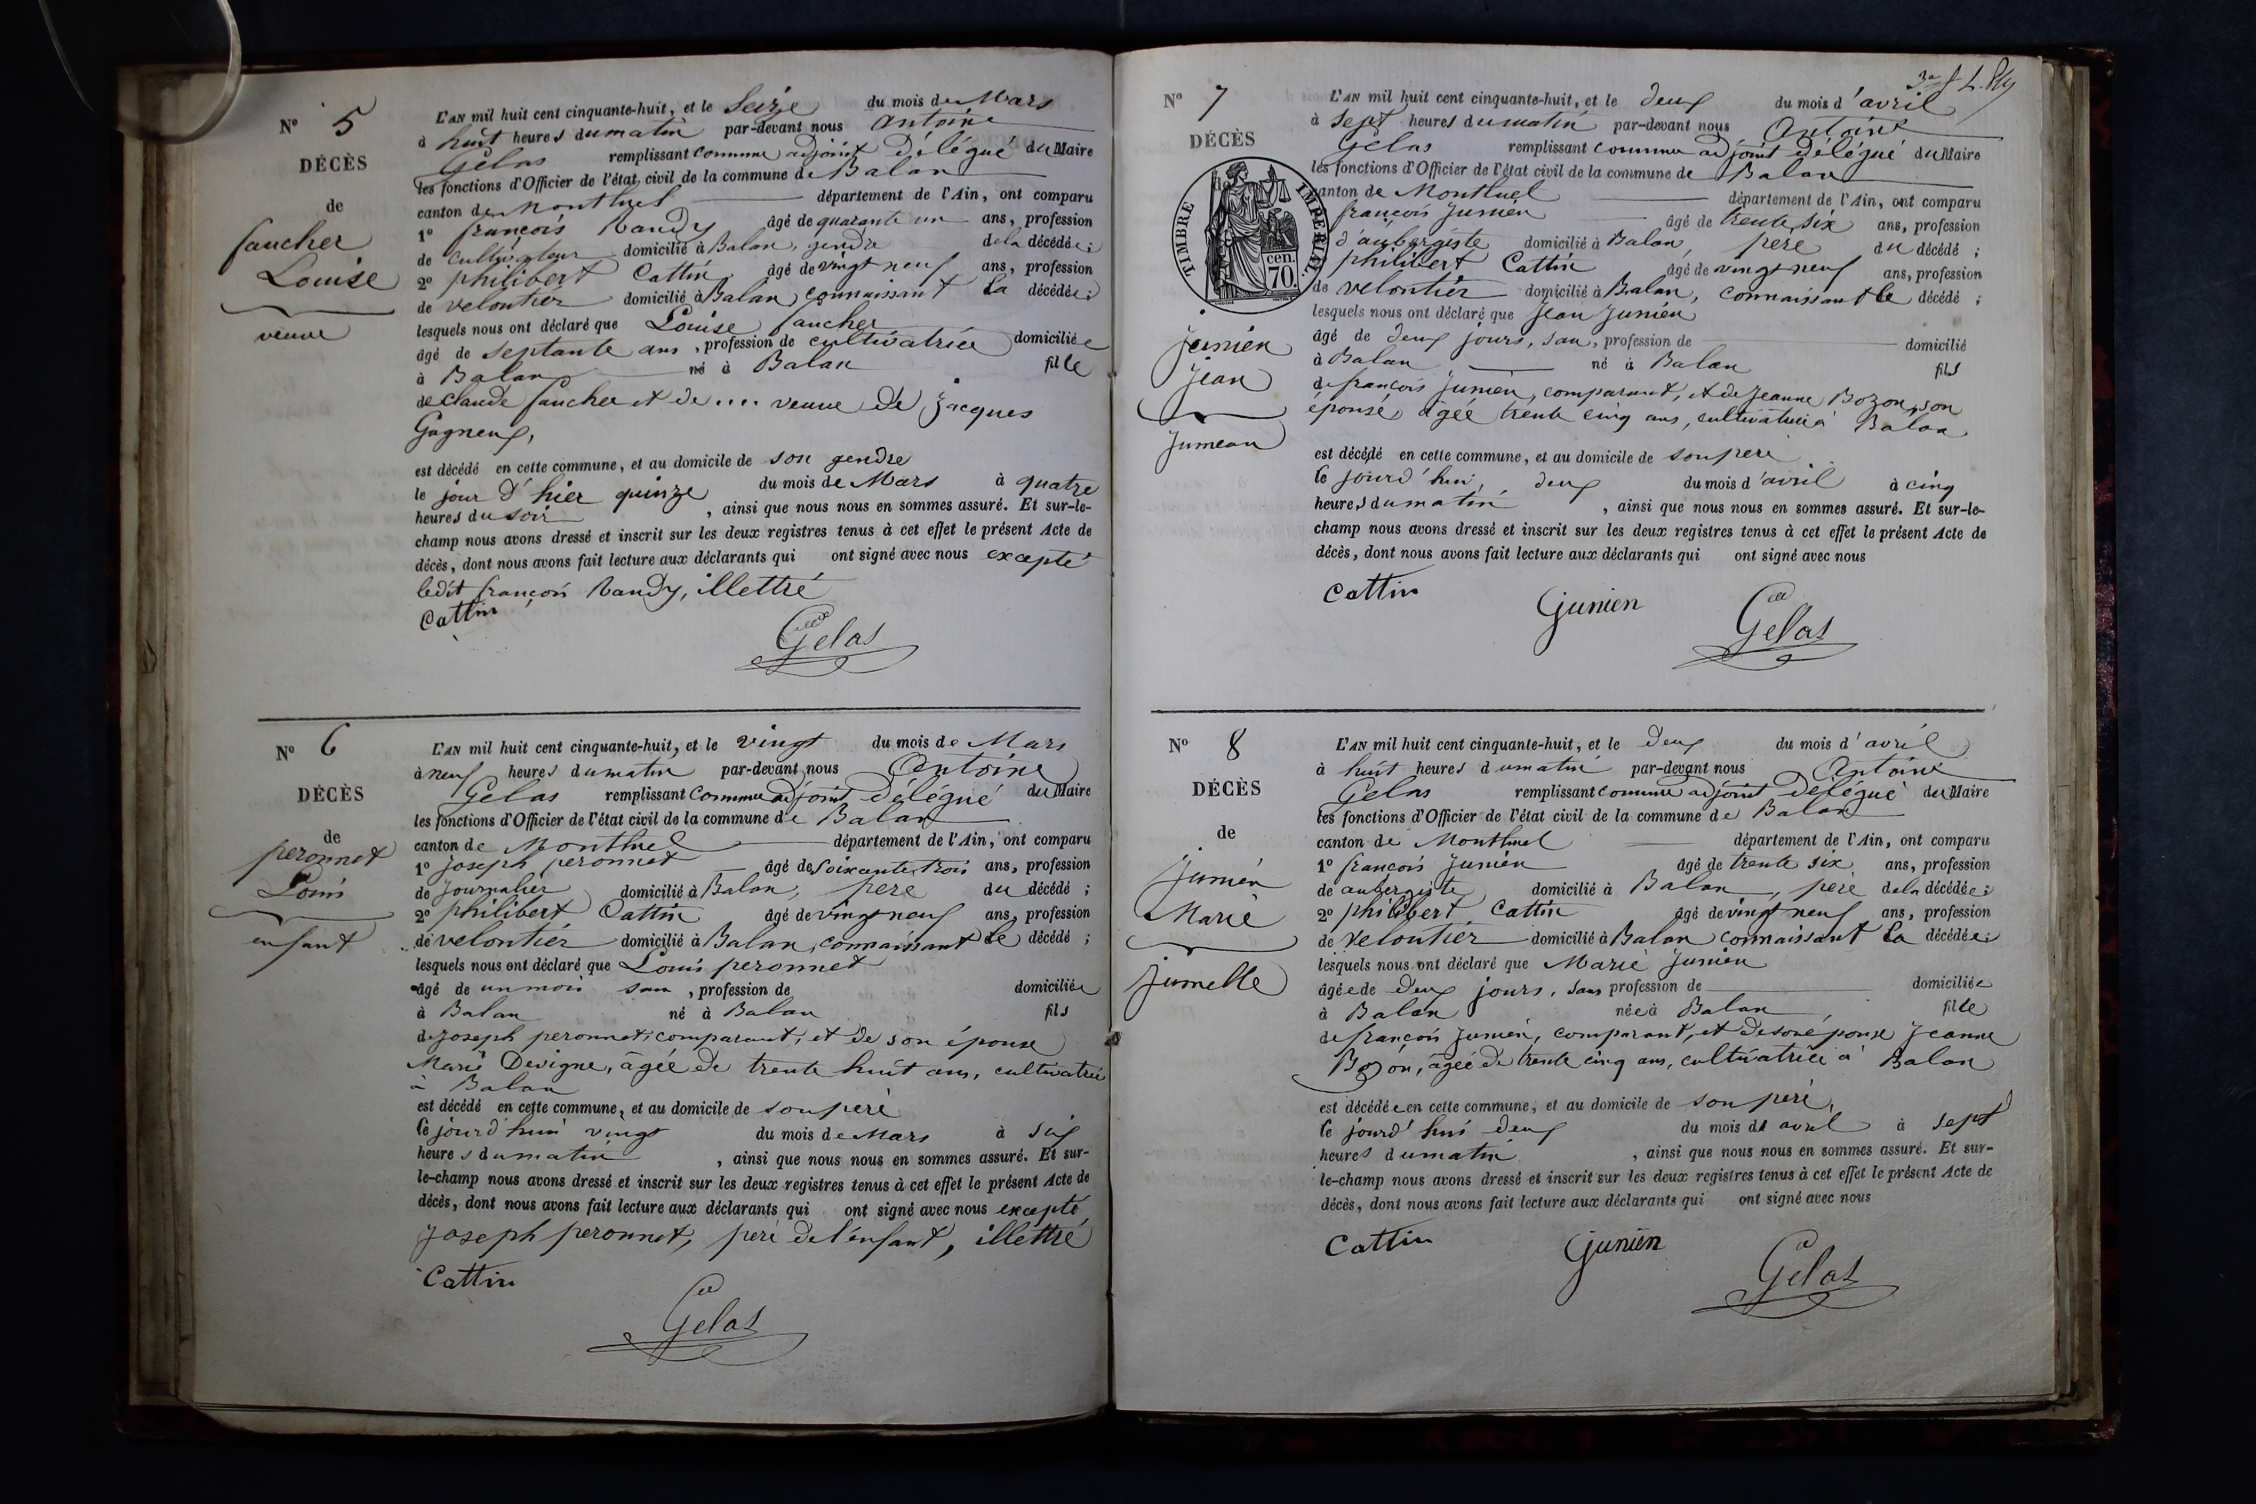 N° 5
DÉCÈS
de
faucher
Louise
veuve
L'AN mil huit cent cinquante-huit, et le Seize du mois de Mars
à huit heures du matin par-devant nous Antoine
Gelas remplissant comme adjoint Délégué du Maire
les fonctions d'Officier de l'état civil de la commune de Balan
canton de Montluel département de l'Ain, ont comparu
1° françois Randy âgé de quarante un ans, profession
de cultivateur domicilié à Balan, gendre de la décédée;
2° philibert Cattin âgé de vingt neuf ans, profession
de veloutier domicilié à Balan, connaissant la décédée;
lesquels nous ont déclaré que Louise faucher
âgé de septante ans, profession de cultivatrice domiciliée
à Balan né à Balan fille
de Claude faucher et de .... veuve de jacques
Gagneux,
est décédé en cette commune, et au domicile de son gendre
le jour d'hier quinze du mois de Mars à quatre
heures du soir, ainsi que nous nous en sommes assuré. Et sur-le-
champ nous avons dressé et inscrit sur les deux registres tenus à cet effet le présent Acte de
décès, dont nous avons fait lecture aux déclarants qui ont signé avec nous excepté
ledit françois Randy, illettré
Cattin
Gelas
N° 6
DÉCÈS
de
peronnet
Louis
enfant
L'AN mil huit cent cinquante-huit, et le vingt du mois de Mars
à neuf heures du matin par-devant nous Antoine
Gelas remplissant comme adjoint Délégué du Maire
les fonctions d'Officier de l'état civil de la commune de Balan
canton de Montluel département de l'Ain, ont comparu
1° joseph peronnet âgé de soixante trois ans, profession
de journalier domicilié à Balan, père du décédé;
2° philibert Cattin âgé de vingt neuf ans, profession
de veloutier domicilié à Balan, connaissant le décédé;
lesquels nous ont déclaré que Louis peronnet
âgé de un mois san, profession de domiciliée
à Balan né à Balan fils
de joseph peronnet, comparant, et de son épouse
Marie Devigne, âgée de trente huit ans, cultivatrice
à Balan
est décédé en cette commune, et au domicile de son père
le jourd'hui vingt du mois de Mars à six
heures du matin, ainsi que nous nous en sommes assuré. Et sur-
le-champ nous avons dressé et inscrit sur les deux registres tenus à cet effet le présent Acte de
décès, dont nous avons fait lecture aux déclarants qui ont signé avec nous excepté
joseph peronnet, père de l'enfant, illettré
Cattin
Gelas
N° 7
DÉCÈS
TIMBRE IMPERIAL
cen.
70.
junien
jean
jumeau
L'AN mil huit cent cinquante-huit, et le deux du mois d'avril
à sept heures du matin par-devant nous Antoine
Gelas remplissant comme adjoint Délégué du Maire
les fonctions d'Officier de l'état civil de la commune de Balan
canton de Montluel département de l'Ain, ont comparu
françois junien âgé de trente six ans, profession
d'aubergiste domicilié à Balan, père du décédé;
philibert Cattin âgé de vingt neuf ans, profession
de veloutier domicilié à Balan, connaissant le décédé;
lesquels nous ont déclaré que jean junien
âgé de deux jours, san, profession de domicilié
à Balan né à Balan fils
de françois junien, comparant, et de jeanne Bozon, son
épouse âgée trente cinq ans, cultivatrice à Balan
est décédé en cette commune, et au domicile de son père
le jourd'hui, deux du mois d'avril à cinq
heures du matin, ainsi que nous nous en sommes assuré. Et sur-le-
champ nous avons dressé et inscrit sur les deux registres tenus à cet effet le présent Acte de
décès, dont nous avons fait lecture aux déclarants qui ont signé avec nous
Cattin
junien
Gelas
N° 8
DÉCÈS
de
junien
Marie
jumelle
L'AN mil huit cent cinquante-huit, et le deux du mois d'avril
à huit heures du matin par-devant nous Antoine
Gelas remplissant comme adjoint Délégué du Maire
les fonctions d'Officier de l'état civil de la commune de Balan
canton de Montluel département de l'Ain, ont comparu
1° françois junien âgé de trente six ans, profession
de aubergiste domicilié à Balan, père de la décédée;
2° philibert Cattin âgé de vingt neuf ans, profession
de veloutier domicilié à Balan connaissant la décédée;
lesquels nous ont déclaré que Marie junien
âgée de deux jours, sans profession de domiciliée
à Balan née à Balan fille
de françois junien, comparant, et de son épouse jeanne
Bozon, âgée de trente cinq ans, cultivatrice à Balan
est décédée en cette commune, et au domicile de son père,
le jourd'hui deux du mois de avril à sept
heures du matin, ainsi que nous nous en sommes assuré. Et sur-
le-champ nous avons dressé et inscrit sur les deux registres tenus à cet effet le présent Acte de
décès, dont nous avons fait lecture aux déclarants qui ont signé avec nous
Cattin
junien
Gelas